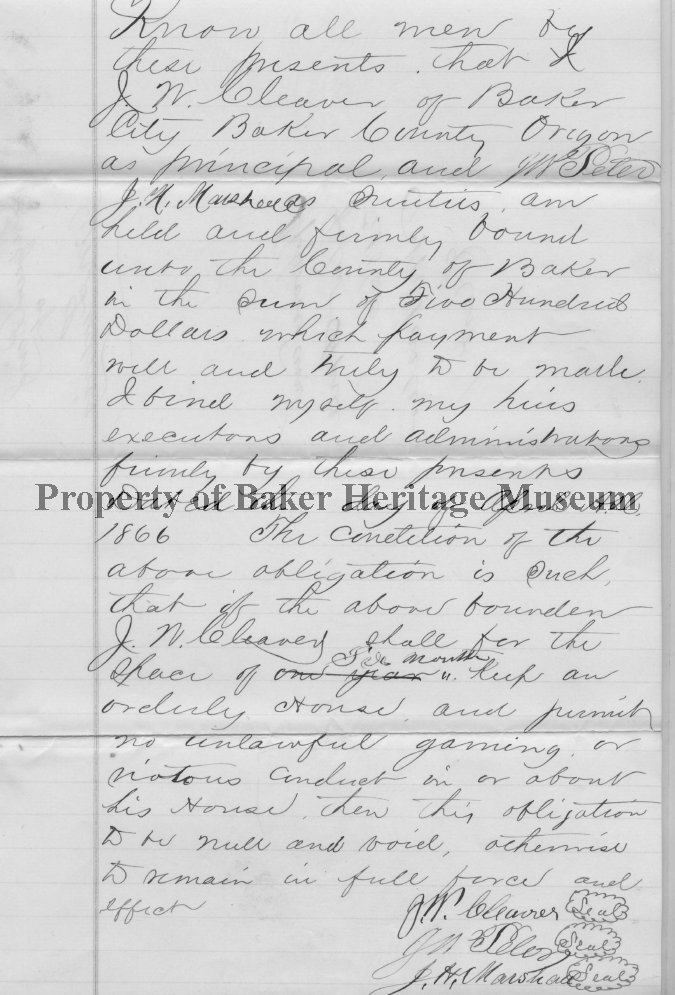 Know all men by
these presents, that I
J. W. Cleaver of Baker
City Baker County Oregon
as principal, and
J. H. Marshall as sureties, am
held and firmly bound
unto the County of Baker
in the sum of Five Hundred
Dollars which payment
well and truly to be made
I bind myself my heirs
executors and administrators
firmly by these presents
Property of Baker Heritage Museum
Dated day of April A.D.
1866 The Condition of the
above obligation is such,
that if the above bounden
J. W. Cleaver shall for the
Six months
space of one year ". keep an
orderly House and permit
no unlawful gaming or
riotous conduct in or about
his House, then this obligation
to be null and void, otherwise
to remain in full force and
effect
J. W. Cleaver Seal
Seal
J. H. Marshall Seal